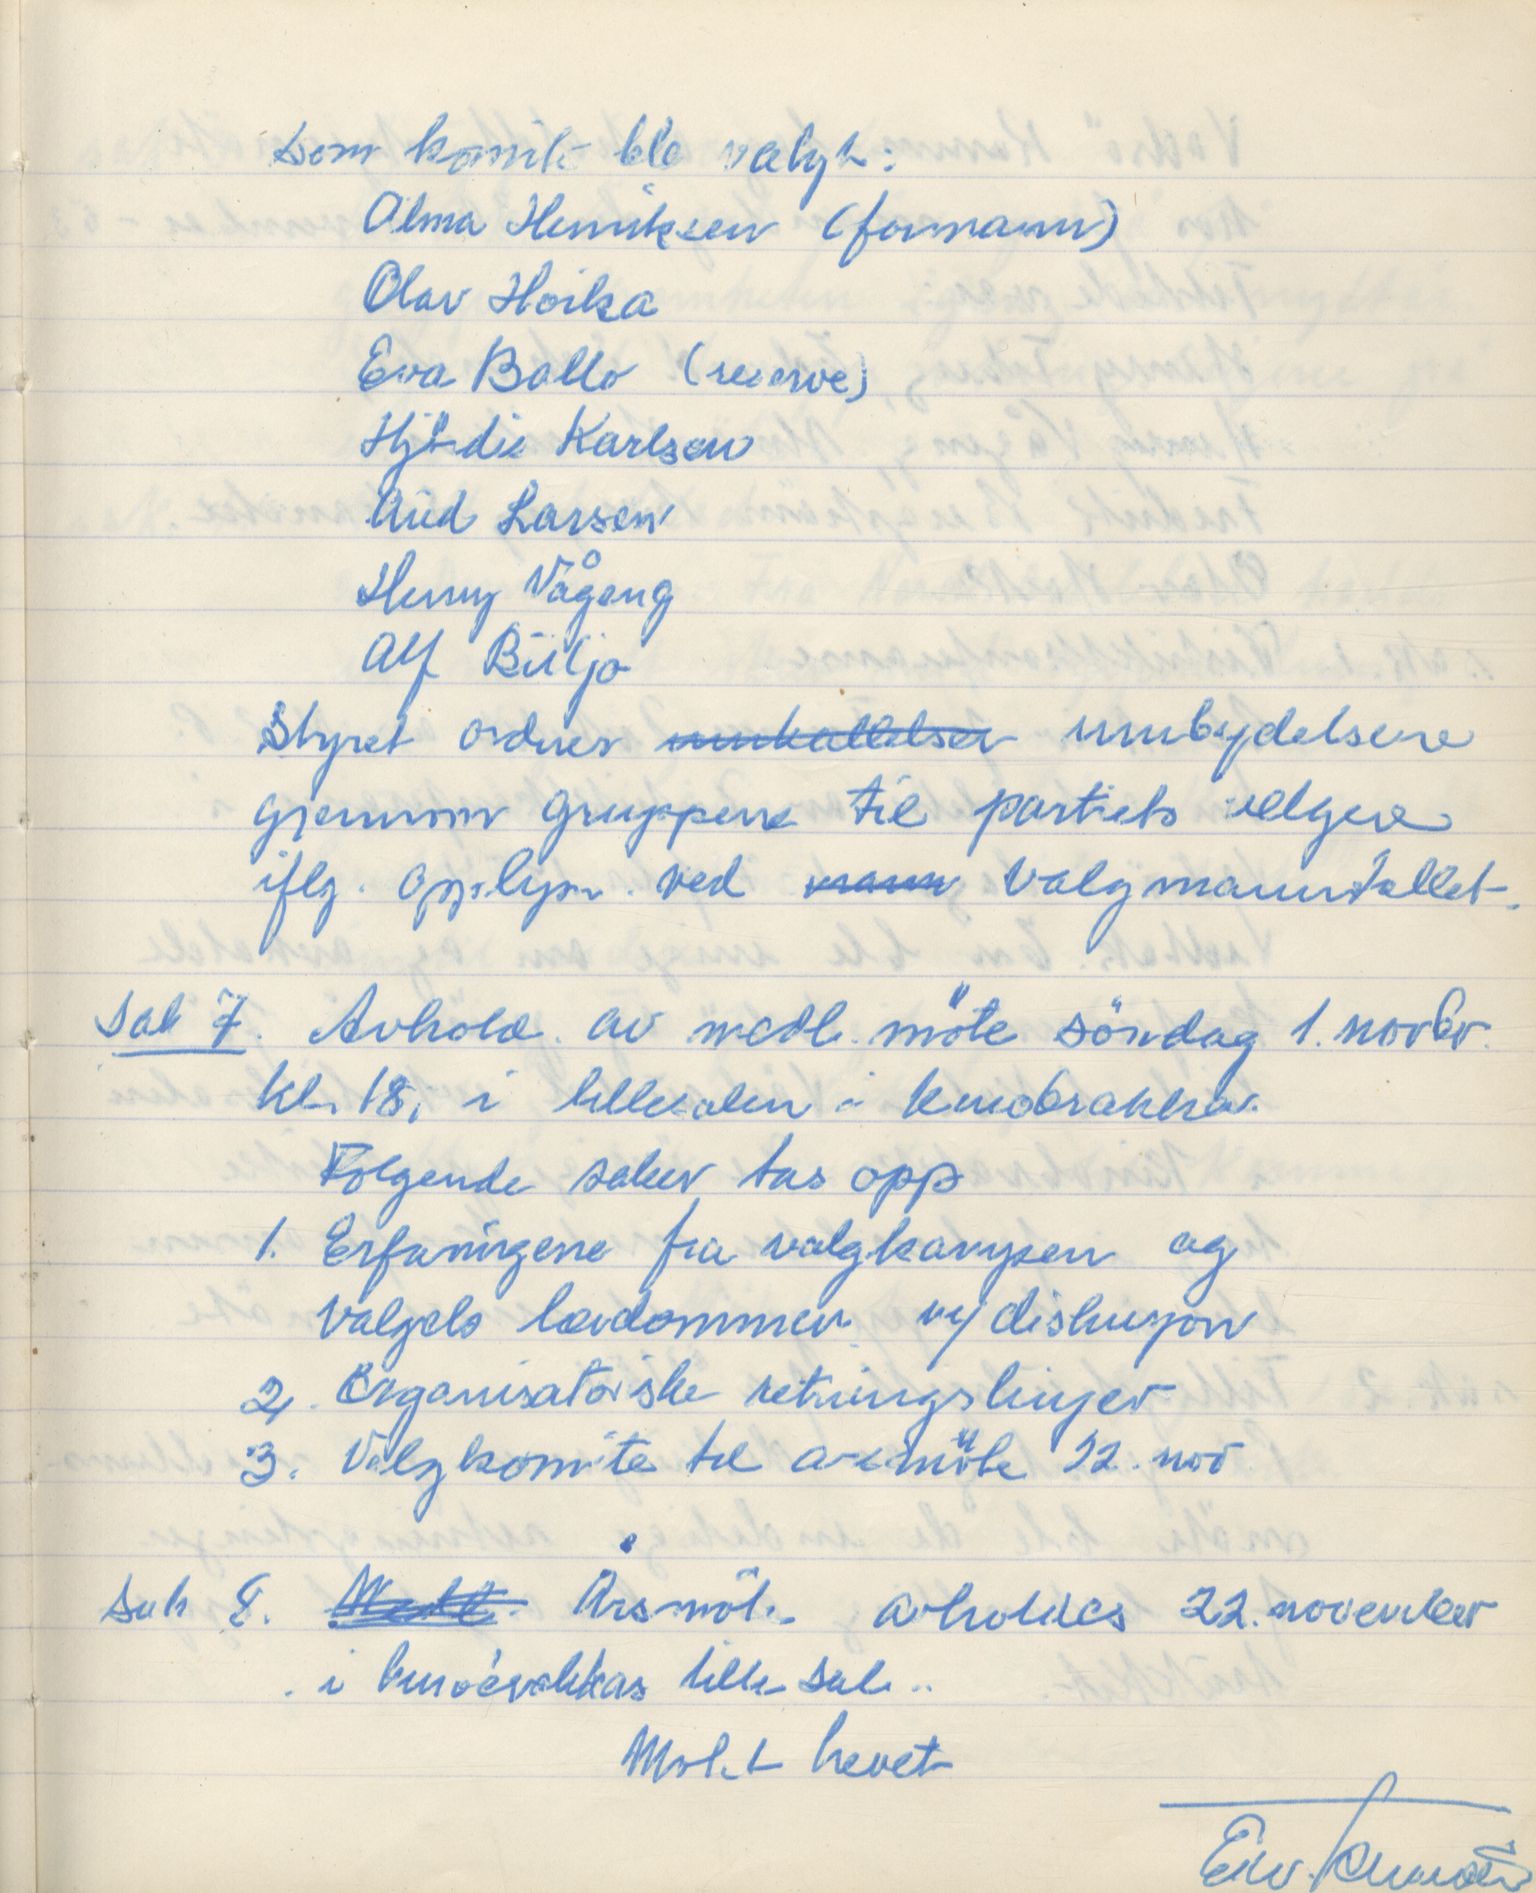 Som komite ble valgt:
Alma Henriksen (formann)
Olav Hoika
Eva Ballo (reserve)
Hjördis Karlsen
Aud Larsen
Henry Vågeng
Alf Biiljo
Styret ordner innkallelser innbydelsene
gjennom gruppene til partiets velgere
iflg. opplysn. ved mann valgmanntallet.
Sak 7. Avhold. av medl. möte söndag 1. novbr.
kl. 18, i lillesalen i kinobrakka.
Folgende saker tas opp
1. Erfaringene fra valgkampen og
Valgets lærdommer m/ diskusjon
2. Organisatoriske retningslinjer
3. Valgkomite til årsmöte 22. nov
Sak 8. Medl. Årsmöte avholdes 22. november
i kinobrakkas lille sal.
Motet hevet
Edv.